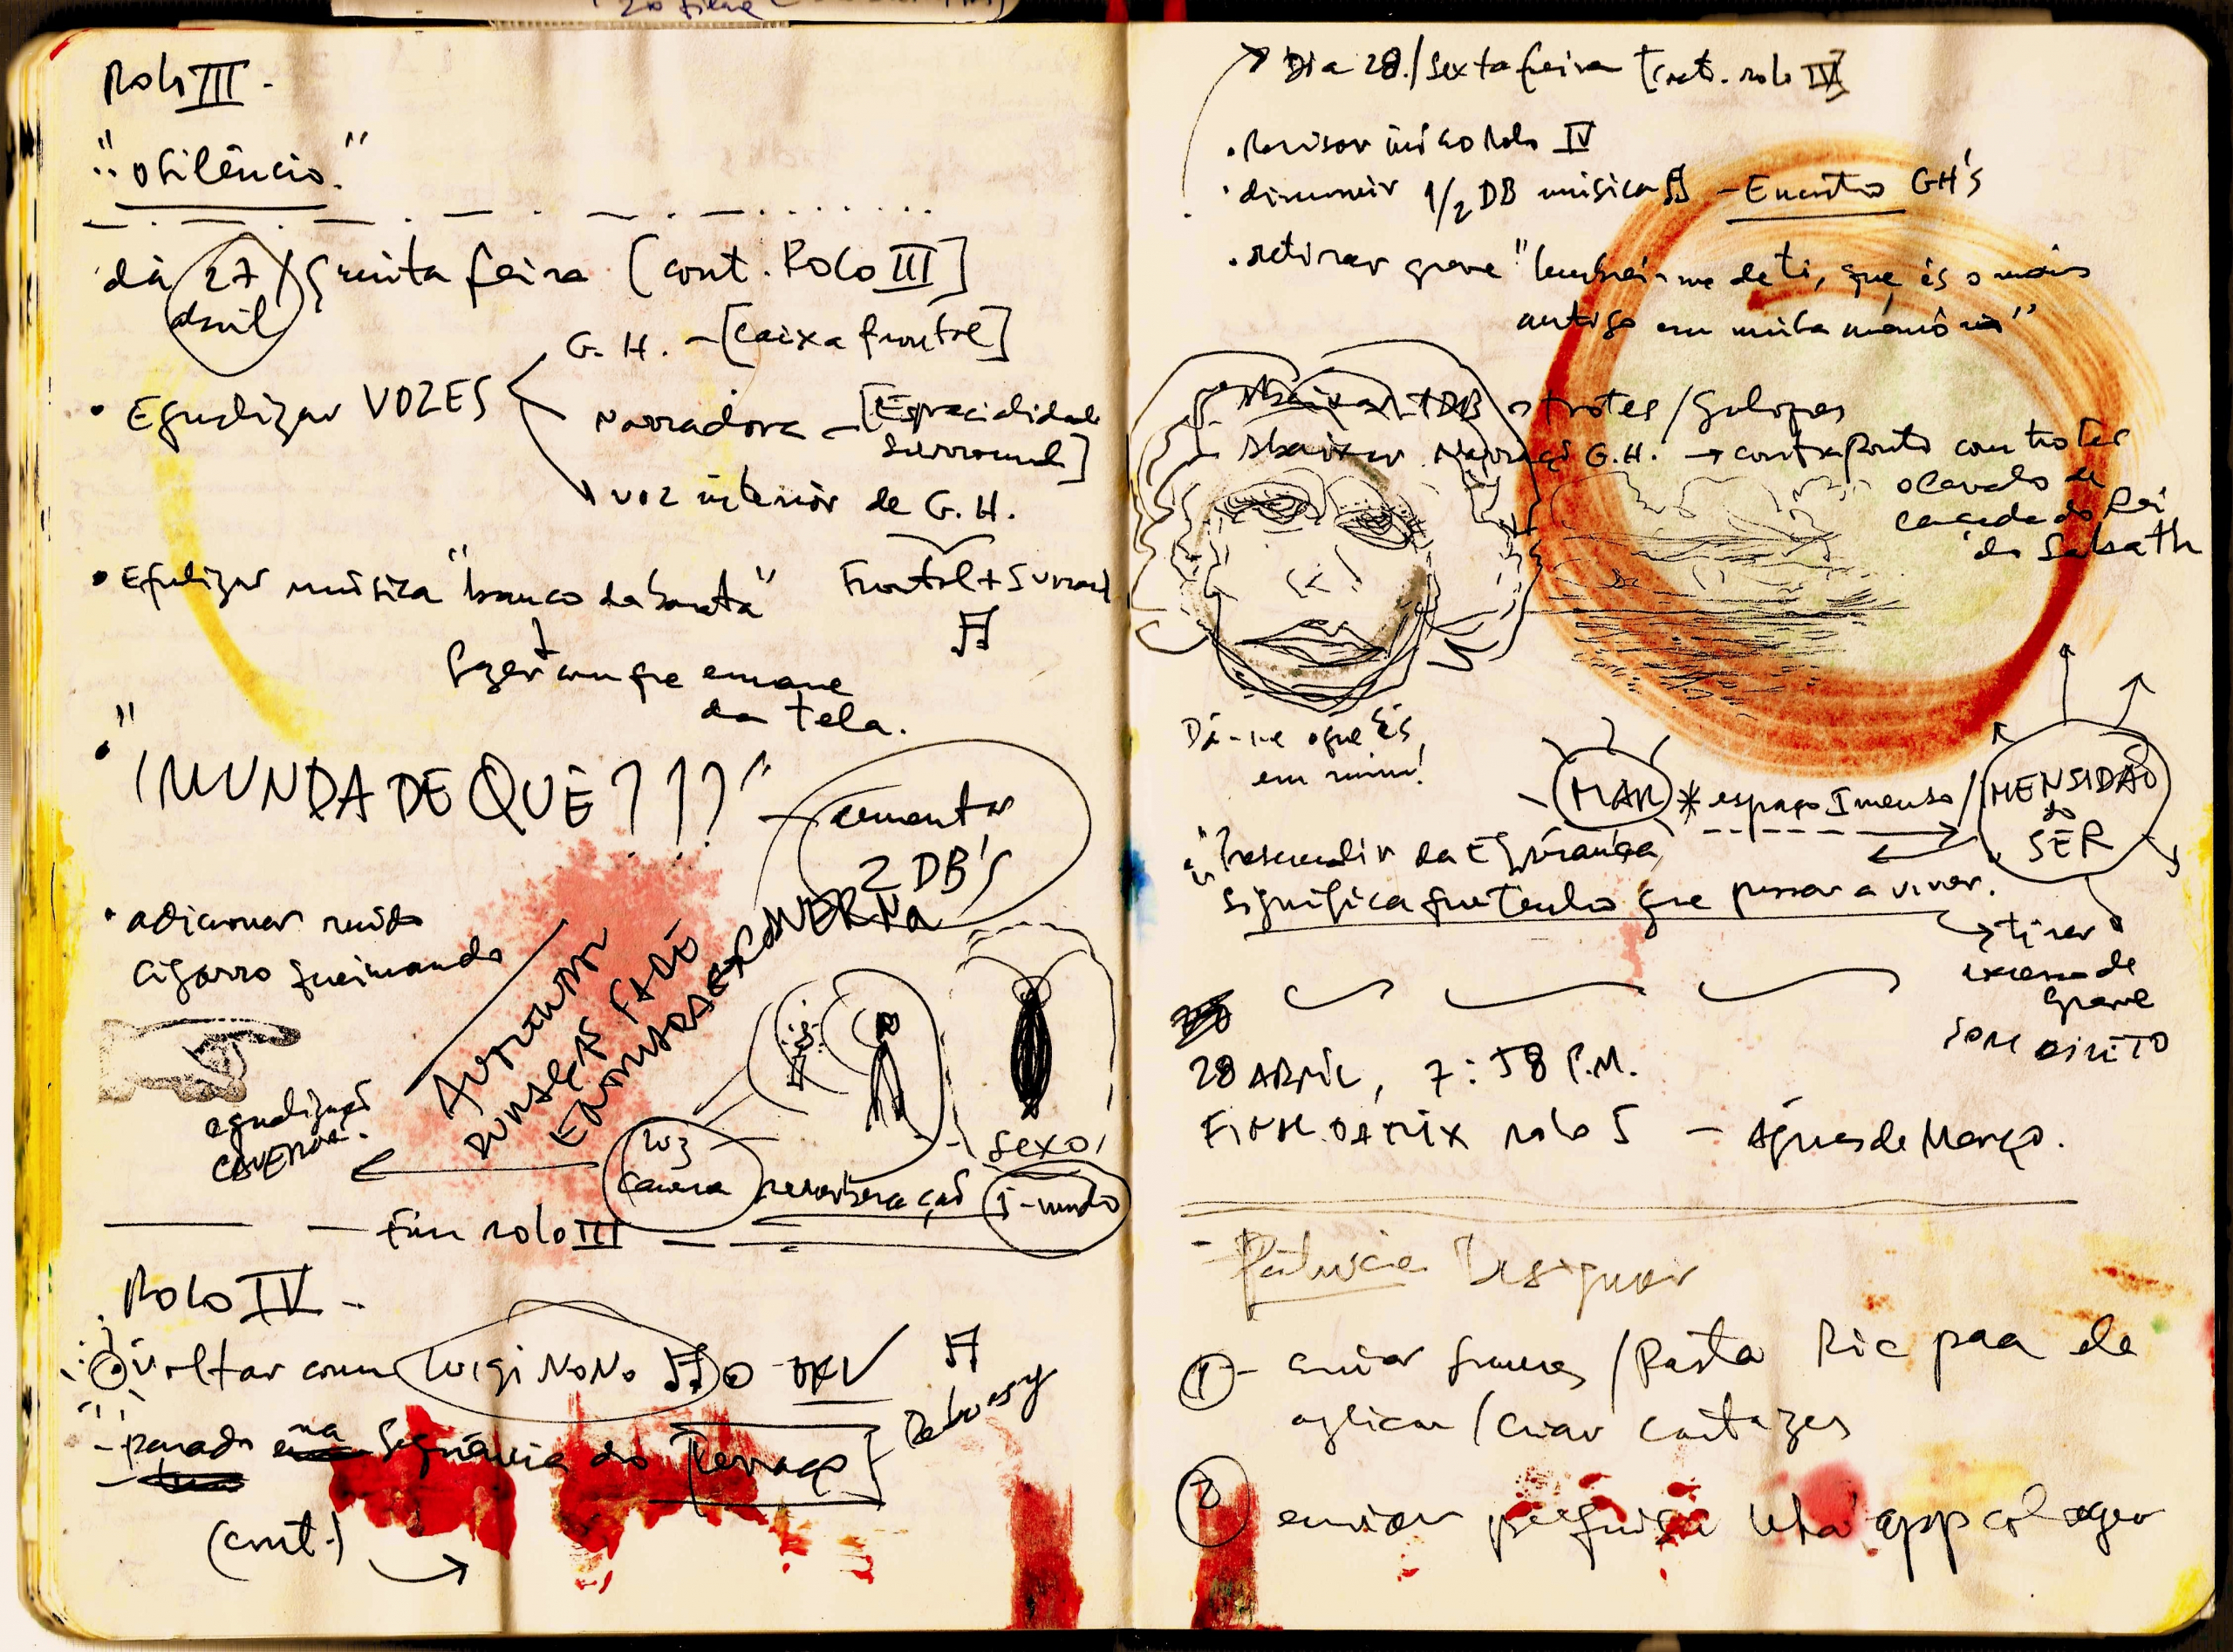 Rolo III -
"O Silêncio."
dia 27 / quinta feira [cont. Rolo III]
abril
G. H. - [caixa frontal]
• Equalizar VOZES
Narradora - [Espacialidade
Surround]
voz interior de G. H.
Frontal + Surround
• Equalizar música "banco da
fazer com que emane
da tela.
• "IMUNDA DE QUÊ???"
aumentar
2 DB's
• adicionar ruído
cigarro queimando
AUMENTAR
FADE
CAVERNA
equalização
CAVERNA.
luz
Caverna
reverberação
sexo!
i-mundo
- Fim rolo III -
Rolo IV -
voltar com Luigi NoNo
Debussy
- parado na Sequência do [Terraço]
(cont.)
Dia 28 / Sexta feira [cont. rolo IV]
• Revisar início Rolo IV
• diminuir 1/2 DB música - Encontro GH'S
• retirar grave "lembrei-me de ti, que és o mais
antigo em minha memória"
Abaixar 1 DB trotes / Galopes
Abaixar Narração G.H. → contraponto com trotes
o cavalo de
caçada do Rei
do Sabath
Dá-me o que És
em mim!
MAR * espaço Imenso / IMENSIDÃO
do
SER
"Prescindir da Esperança
significa que tenho que passar a viver.
→ tirar
excesso de
grave
SOM DIRETO
28 ABRIL, 7:58 P.M.
FINAL DA MIX rolo 5 - Águas de Março.
- Patrícia Designer
1 - enviar frames / Pasta Ric para ela
aplicar / criar cartazes
2 enviar pesquisa